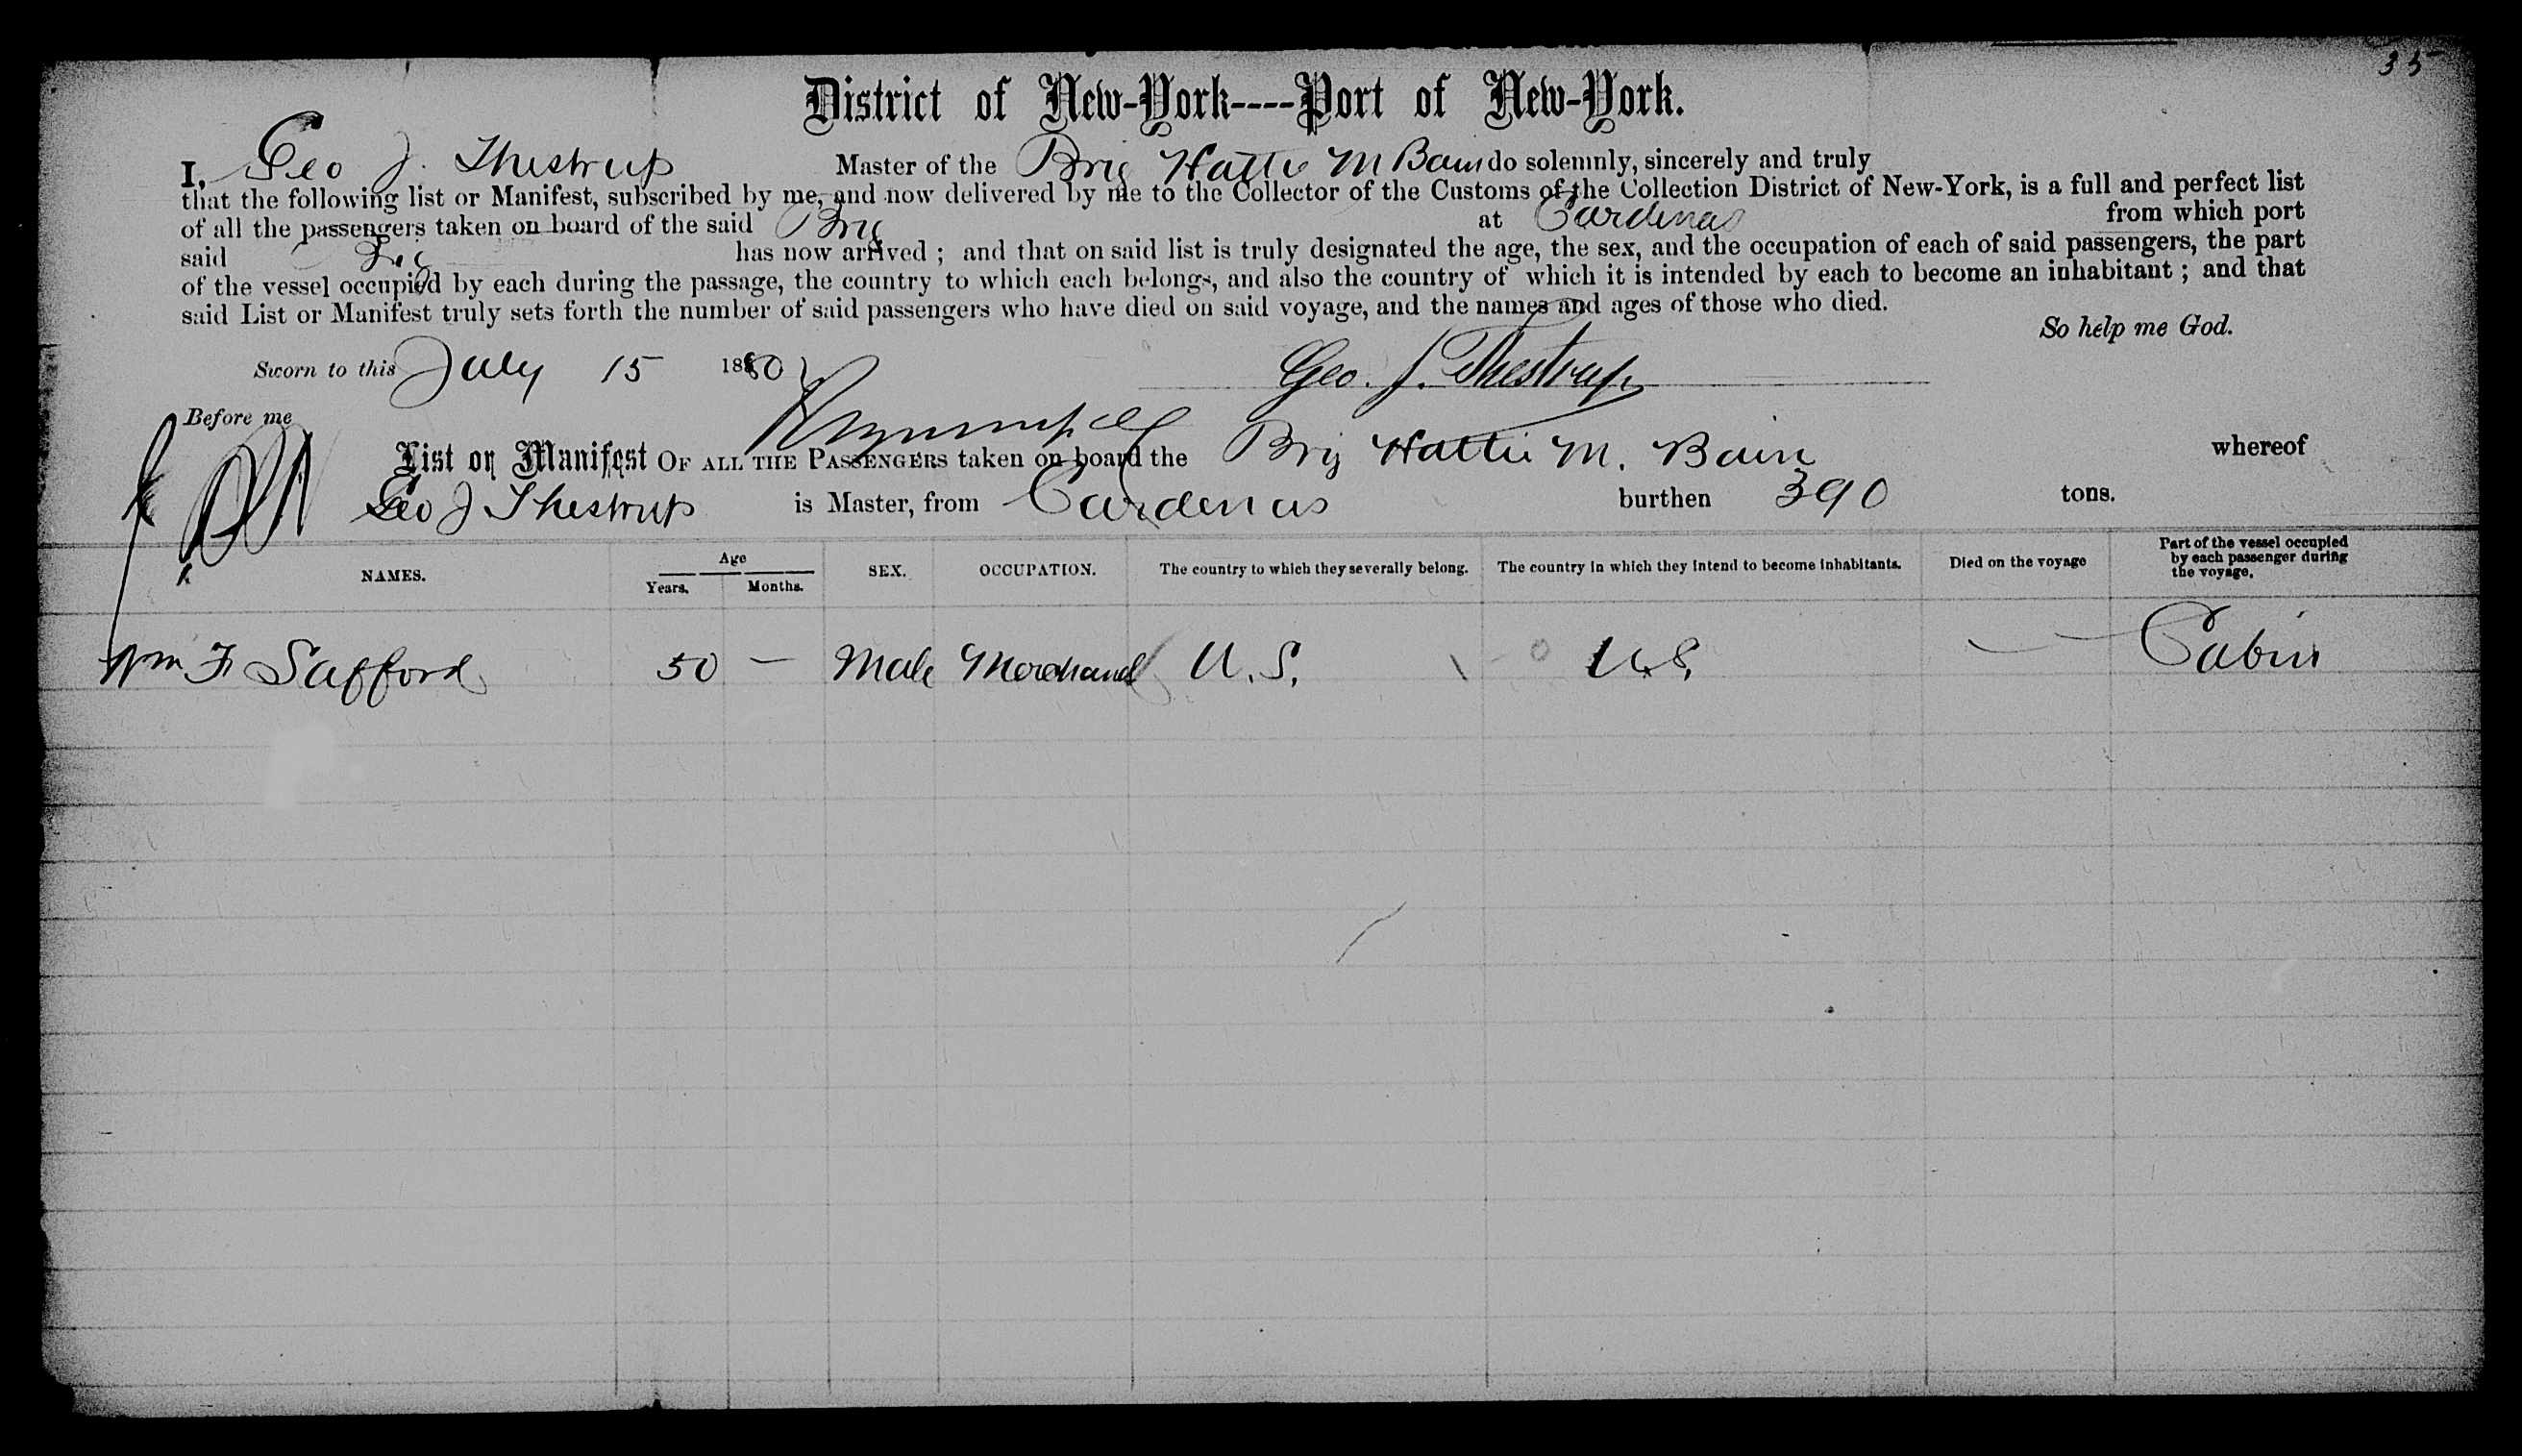 35
District of New-York----Port of New-York.
I, Geo J. Thestrup Master of the Brig Hattie M Bain do solemnly, sincerely and truly
that the following list or Manifest, subscribed by me, and now delivered by me to the Collector of the Customs of the Collection District of New-York, is a full and perfect list
of all the passengers taken on board of the said Brig at Cardenas from which port
said Brig has now arrived ; and that on said list is truly designated the age, the sex, and the occupation of each of said passengers, the part
of the vessel occupied by each during the passage, the country to which each belongs, and also the country of which it is intended by each to become an inhabitant ; and that
said List or Manifest truly sets forth the number of said passengers who have died on said voyage, and the names and ages of those who died.
So help me God.
Sworn to this July 15 1880 Geo. J. Thestrup
Before me
List or Manifest OF ALL THE PASSENGERS taken on board the Brig Hattie M. Bain whereof
Geo J Thestrup is Master, from Cardenas burthen 390 tons.
NAMES. Age Years. Months. SEX. OCCUPATION. The country to which they severally belong. The country in which they intend to become inhabitants. Died on the voyage Part of the vessel occupied by each passenger during the voyage.
Wm F Safford 50 — Male Merchant U.S. U.S. — Cabin